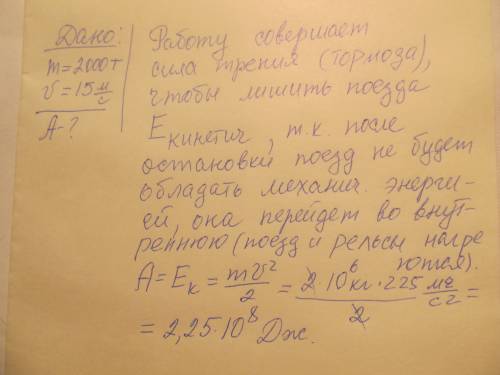 Дано:
m=2000т
v=15 м/с
A-?
Работу совершает
сила трения (тормоза),
чтобы лишить поезда
Eкинетич, т.к. после
остановки поезд не будет
обладать механич. энерги-
ей, она перейдет во внут-
реннюю (поезд и рельсы нагре
ются).
A=Eк=mv²/2=2·10⁶кг·225 м²/с²/2=
=2,25·10⁸ Дж.